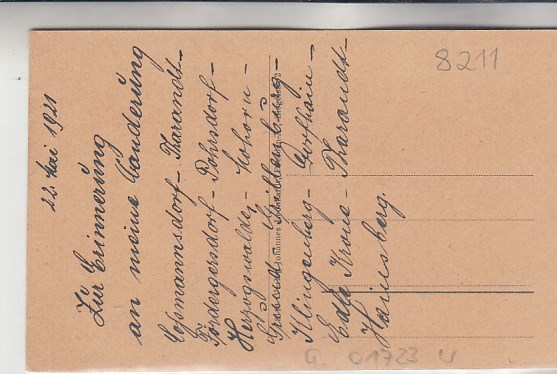 22. Mai 1921
Zur Erinnerung
an meine Wanderung
Coßmannsdorf - Tharandt -
Fördergersdorf - Pohrsdorf -
Herzogswalde - Mohorn -
Grund -
Klingenberg - Dorfhain -
Edle Krone - Tharandt -
Hainsberg.
Johannes
8211
G. 01723